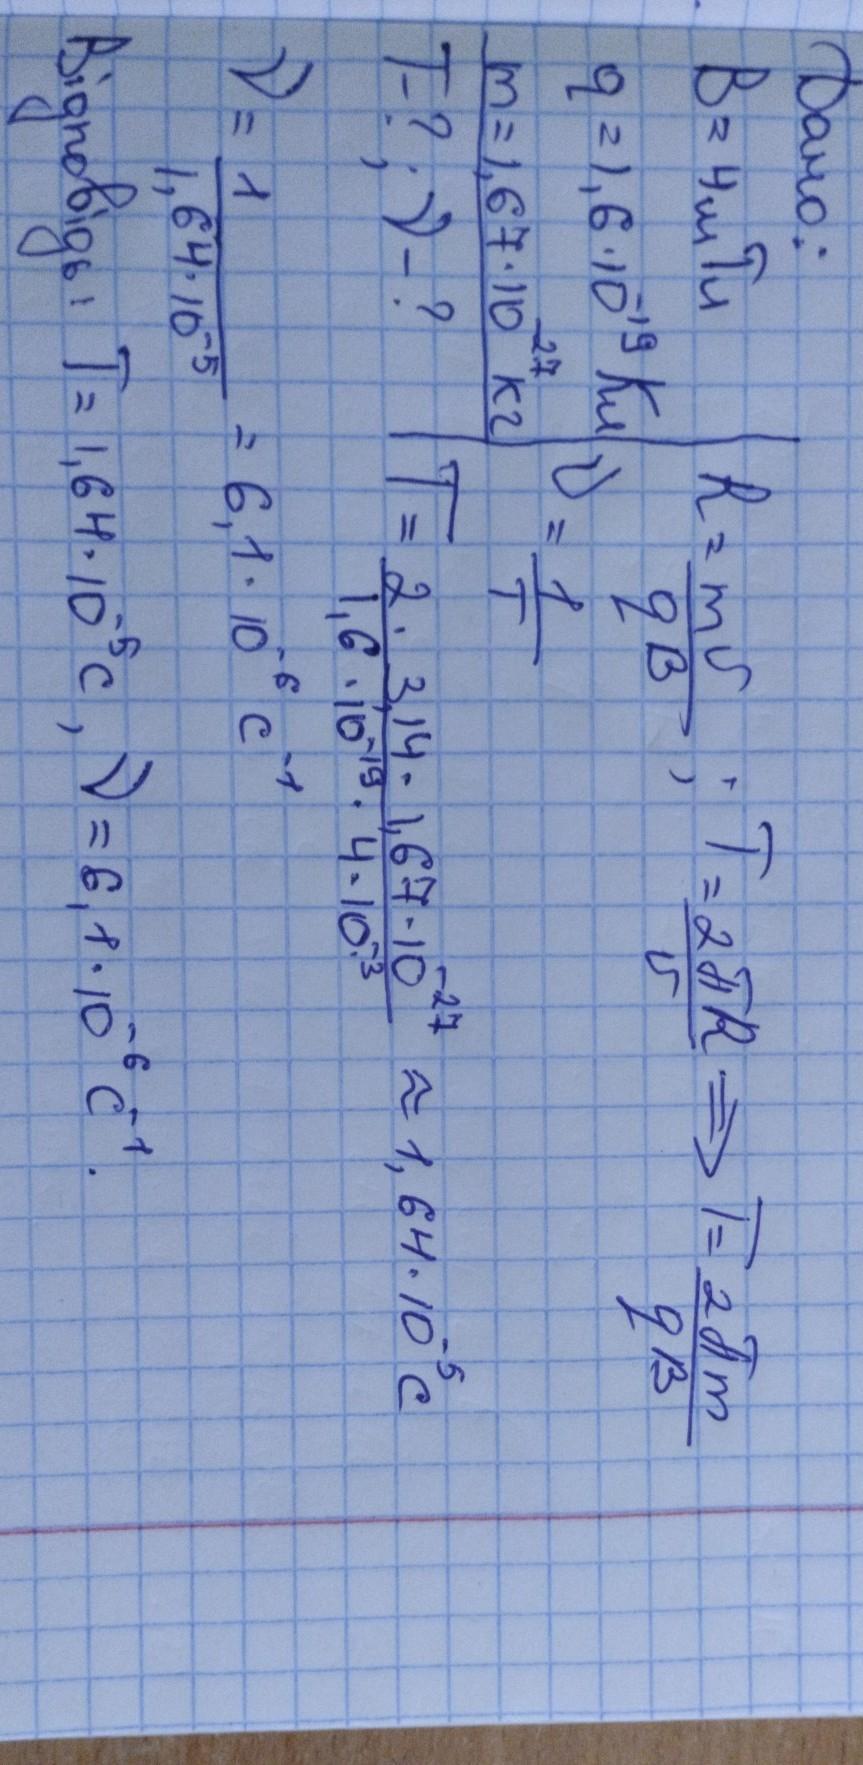 Дано:
B = 4 мТл
q = 1,6·10⁻¹⁹ Кл
m = 1,67·10⁻²⁷ кг
T-?, ν-?
R = mv/qB, ; T = 2πR/v ⇒ T = 2πm/qB
ν = 1/T
T = 2·3,14·1,67·10⁻²⁷/1,6·10⁻¹⁹·4·10⁻³ ≈ 1,64·10⁻⁵ c
ν = 1/1,64·10⁻⁵ = 6,1·10⁻⁶ c⁻¹
Відповідь: T = 1,64·10⁻⁵ c, ν = 6,1·10⁻⁶ c⁻¹.